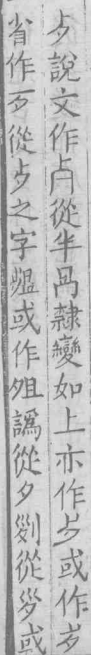 歺說文作𣦵從半冎隸變如上亦作歹或作歺
省作歹從歹之字殟或作殂譌從夕𠛱從𣦻或